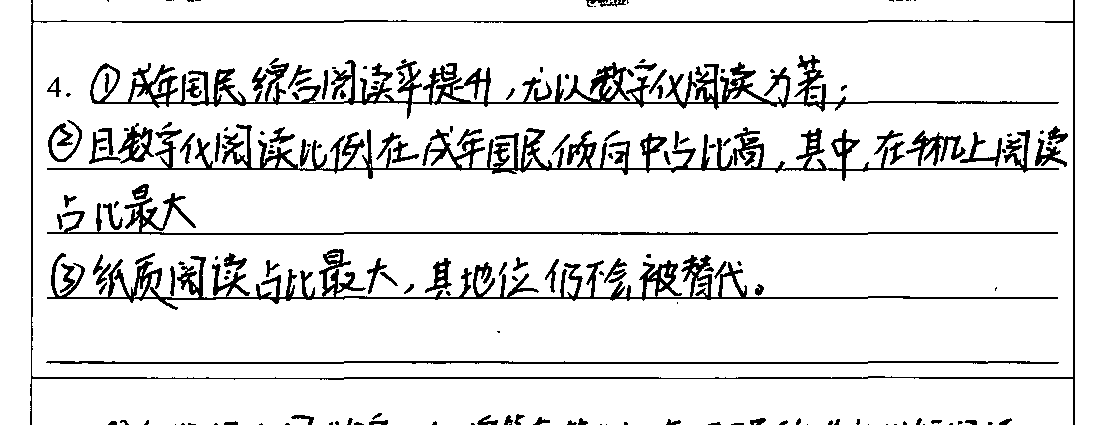 4. ①成年国民综合阅读率提升，尤以数字化阅读为著；
②且数字化阅读比例在成年国民倾向中占比高，其中，在手机上阅读
占比最大
③纸质阅读占比最大，其地位仍不会被替代。